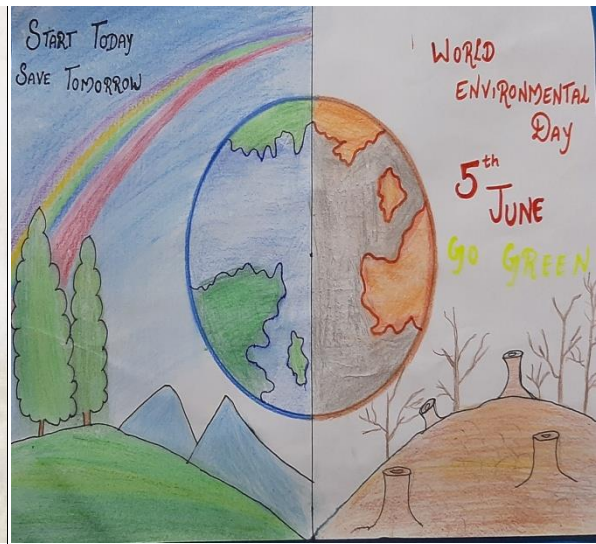 START TODAY
SAVE TOMORROW
WORLD
ENVIRONMENTAL
DAY
5th
JUNE
GO GREEN